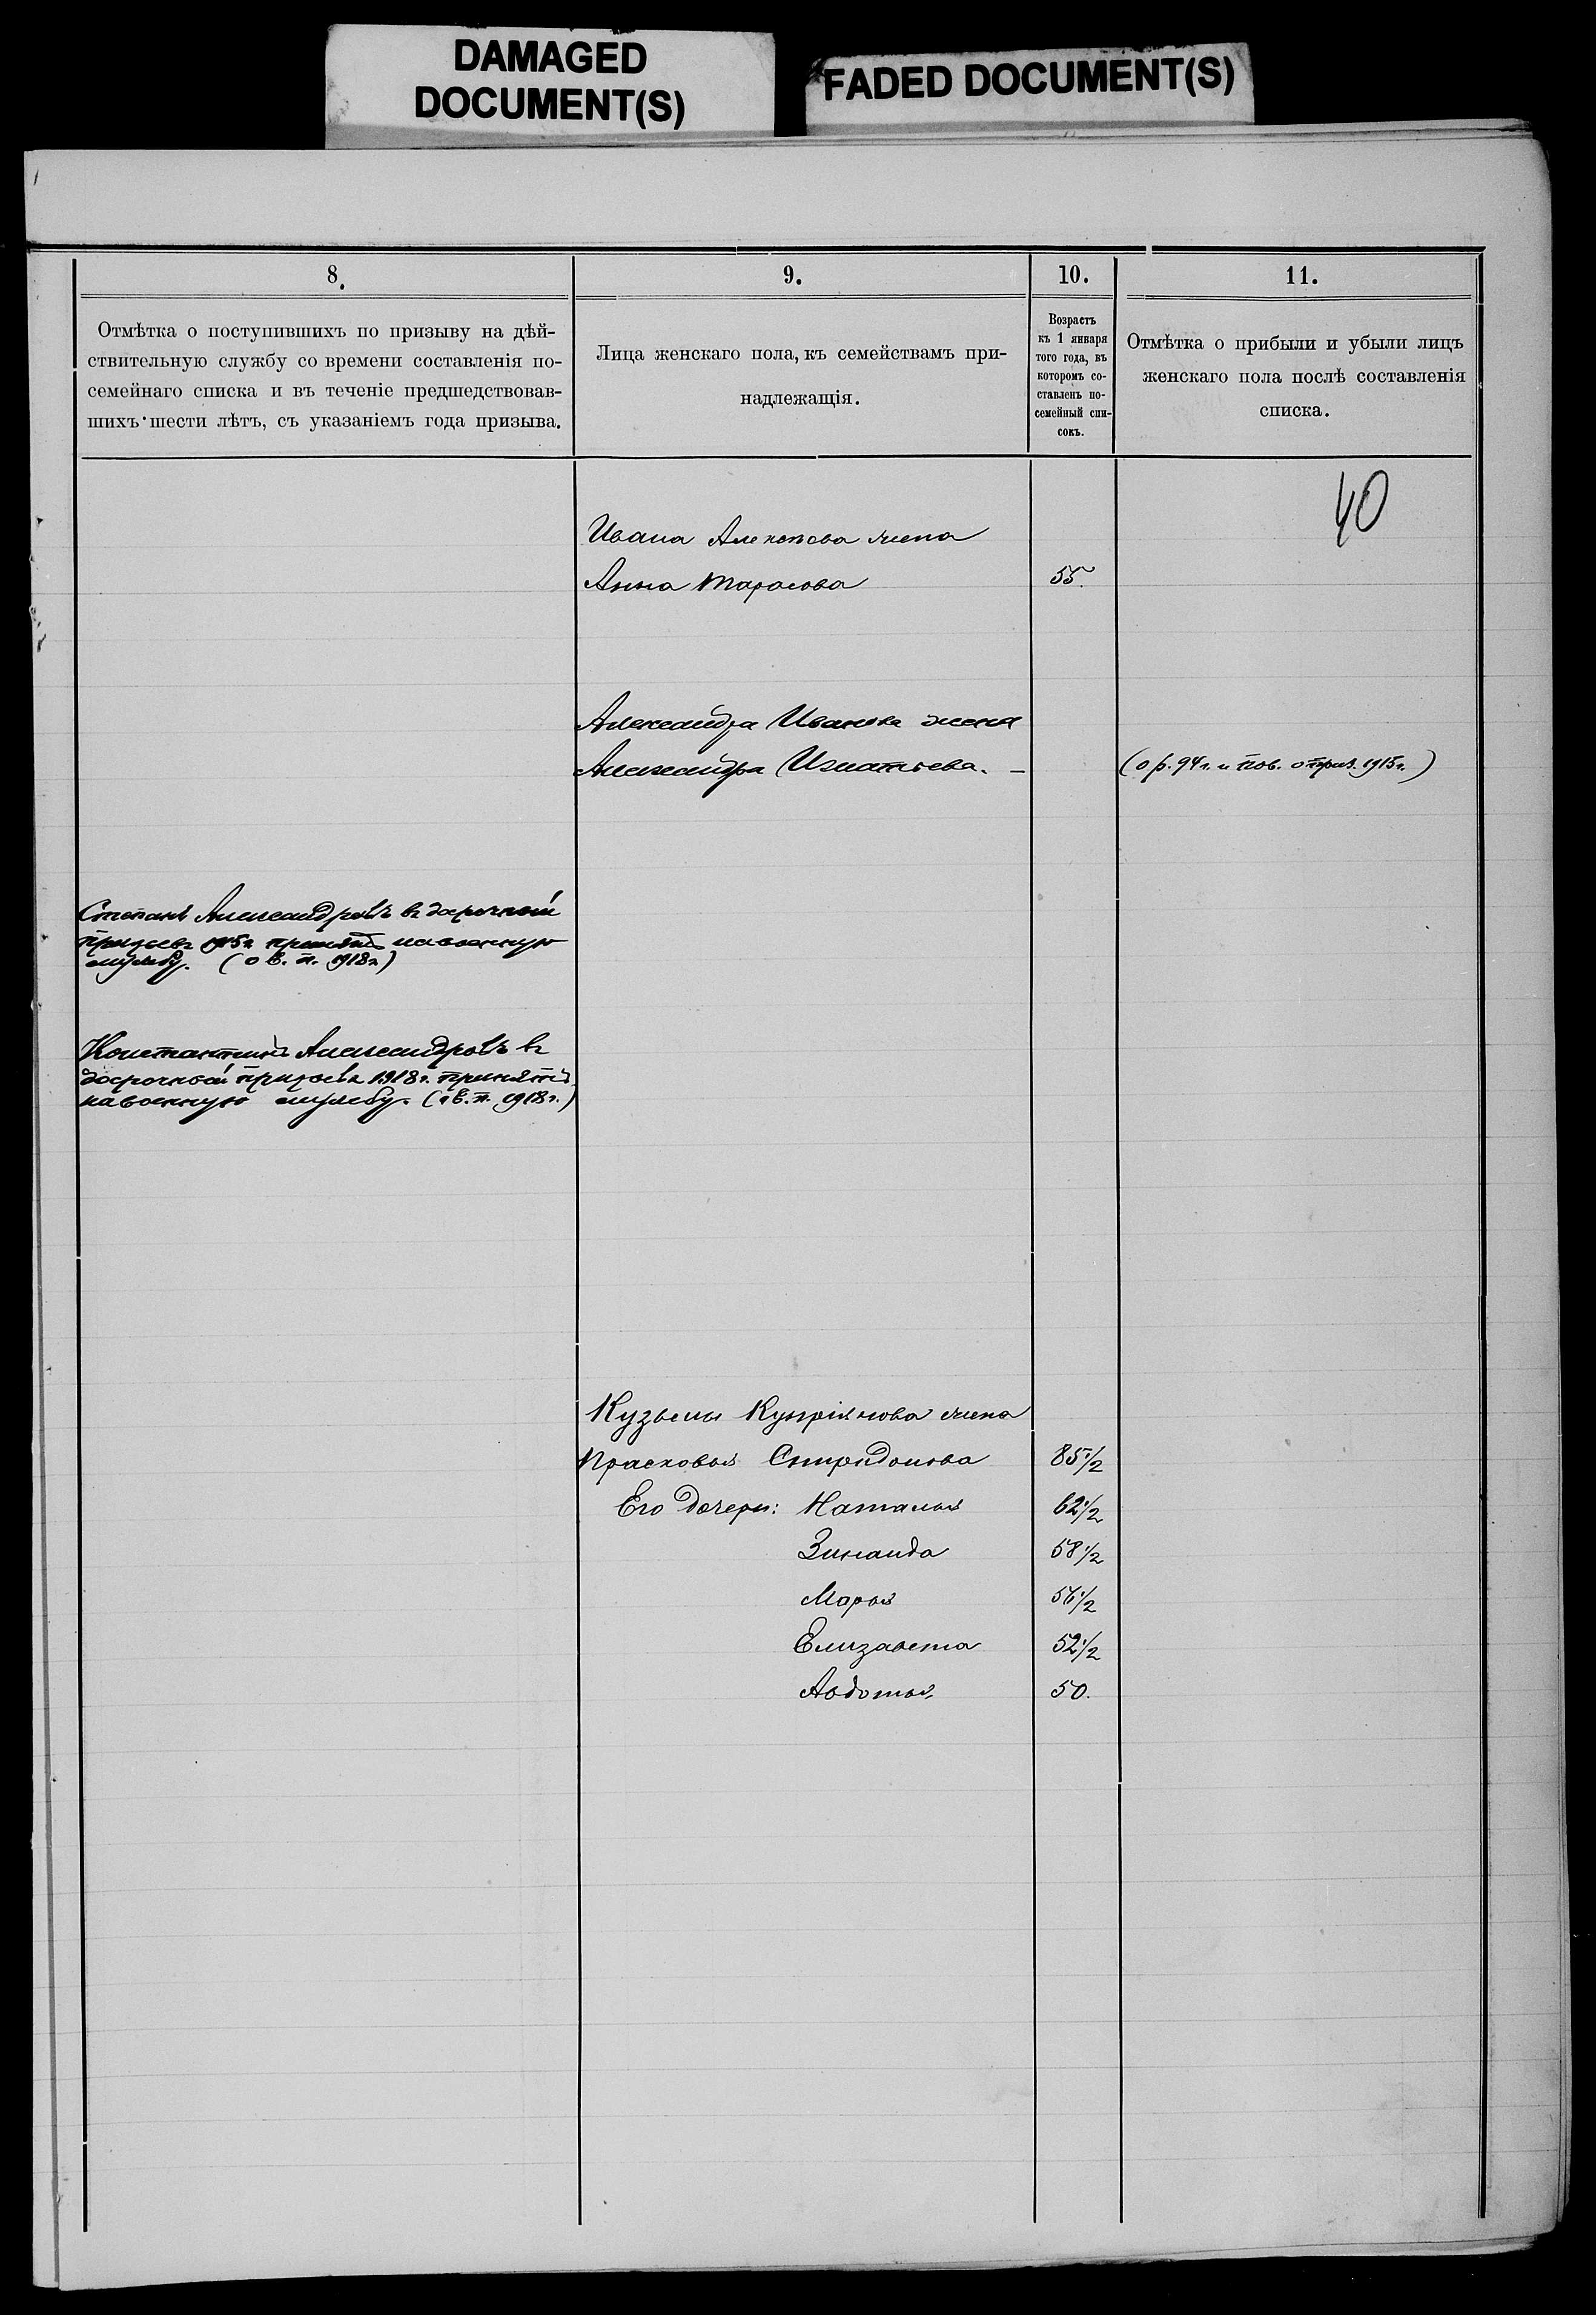 DAMAGED
DOCUMENT(S)
FADED DOCUMENT(S)
8.
9.
10.
11.
Отмѣтка о поступившихъ по призыву на дѣй-
ствительную службу со времени составленія по-
семейнаго списка и въ теченіе предшедствовав-
шихъ шести лѣтъ, съ указаніемъ года призыва.
Лица женскаго пола, къ семействамъ при-
надлежащія.
Возрастъ
къ 1 января
того года, въ
которомъ со-
ставленъ по-
семейный спи-
сокъ.
Отмѣтка о прибыли и убыли лицъ
женскаго пола послѣ составленія
списка.
40
Ивана Алексѣева жена
Анна Тарасова 55.
Александра Иванова жена
Александра Игнатьева. — (о р. 94 г. и пов. о приз. 1915 г.)
Степанъ Александровъ въ досрочной
призывъ 1915 г. принятъ на военную
службу. (о в. п. 1918 г.)
Константинъ Александровъ въ
досрочной призывъ 1918 г. принятъ
на военную службу. (о в. п. 1918 г.)
Кузьмы Купріянова жена
Прасковья Спиридонова 85 1/2
Его дочери: Наталья 62 1/2
Зинаида 58 1/2
Марья 56 1/2
Елизавета 52 1/2
Авдотья 50.